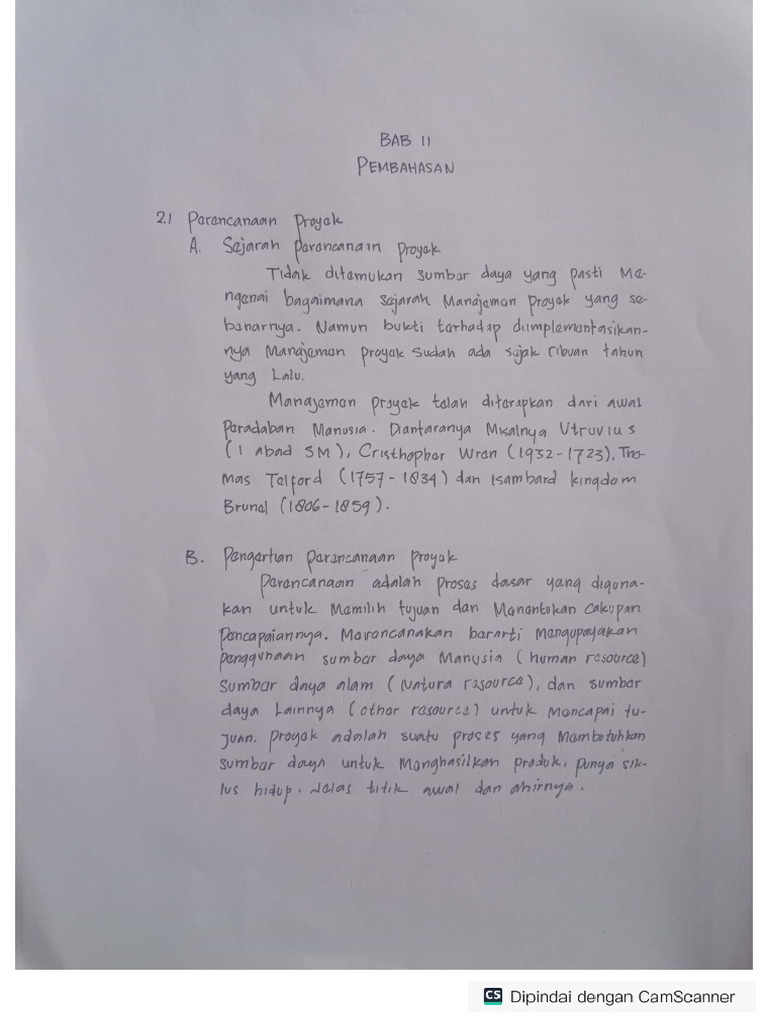 BAB II
PEMBAHASAN
2.1 Perencanaan Proyek
A. Sejarah perencanaan proyek
Tidak ditemukan sumber daya yang pasti Me-
ngenai bagaimana sejarah Manajemen proyek yang se-
benarnya. Namun bukti terhadap diimplementasikan-
nya Manajemen proyek sudah ada sejak ribuan tahun
yang Lalu.
Manajemen proyek telah diterapkan dari awal
Peradaban Manusia. Diantaranya Misalnya Utruvius
(1 abad SM), Cristhopher Wren (1932-1723), Tho-
mas Telford (1757-1834) dan Isambard kingdom
Brunel (1806-1859).
B. Pengertian perencanaan proyek
Perencanaan adalah proses dasar yang diguna-
kan untuk Memilih tujuan dan Menentukan Cakupan
Pencapaiannya. Merencanakan berarti Mengupayakan
penggunaan sumber daya Manusia (human resource)
Sumber daya alam (Natura resource), dan sumber
daya Lainnya (other resource) untuk Mencapai tu-
juan. proyek adalah suatu proses yang Membetuhkan
sumber daya untuk Menghasilkan produk, punya sik-
lus hidup, Jelas titik awal dan ahirnya.
CS Dipindai dengan CamScanner